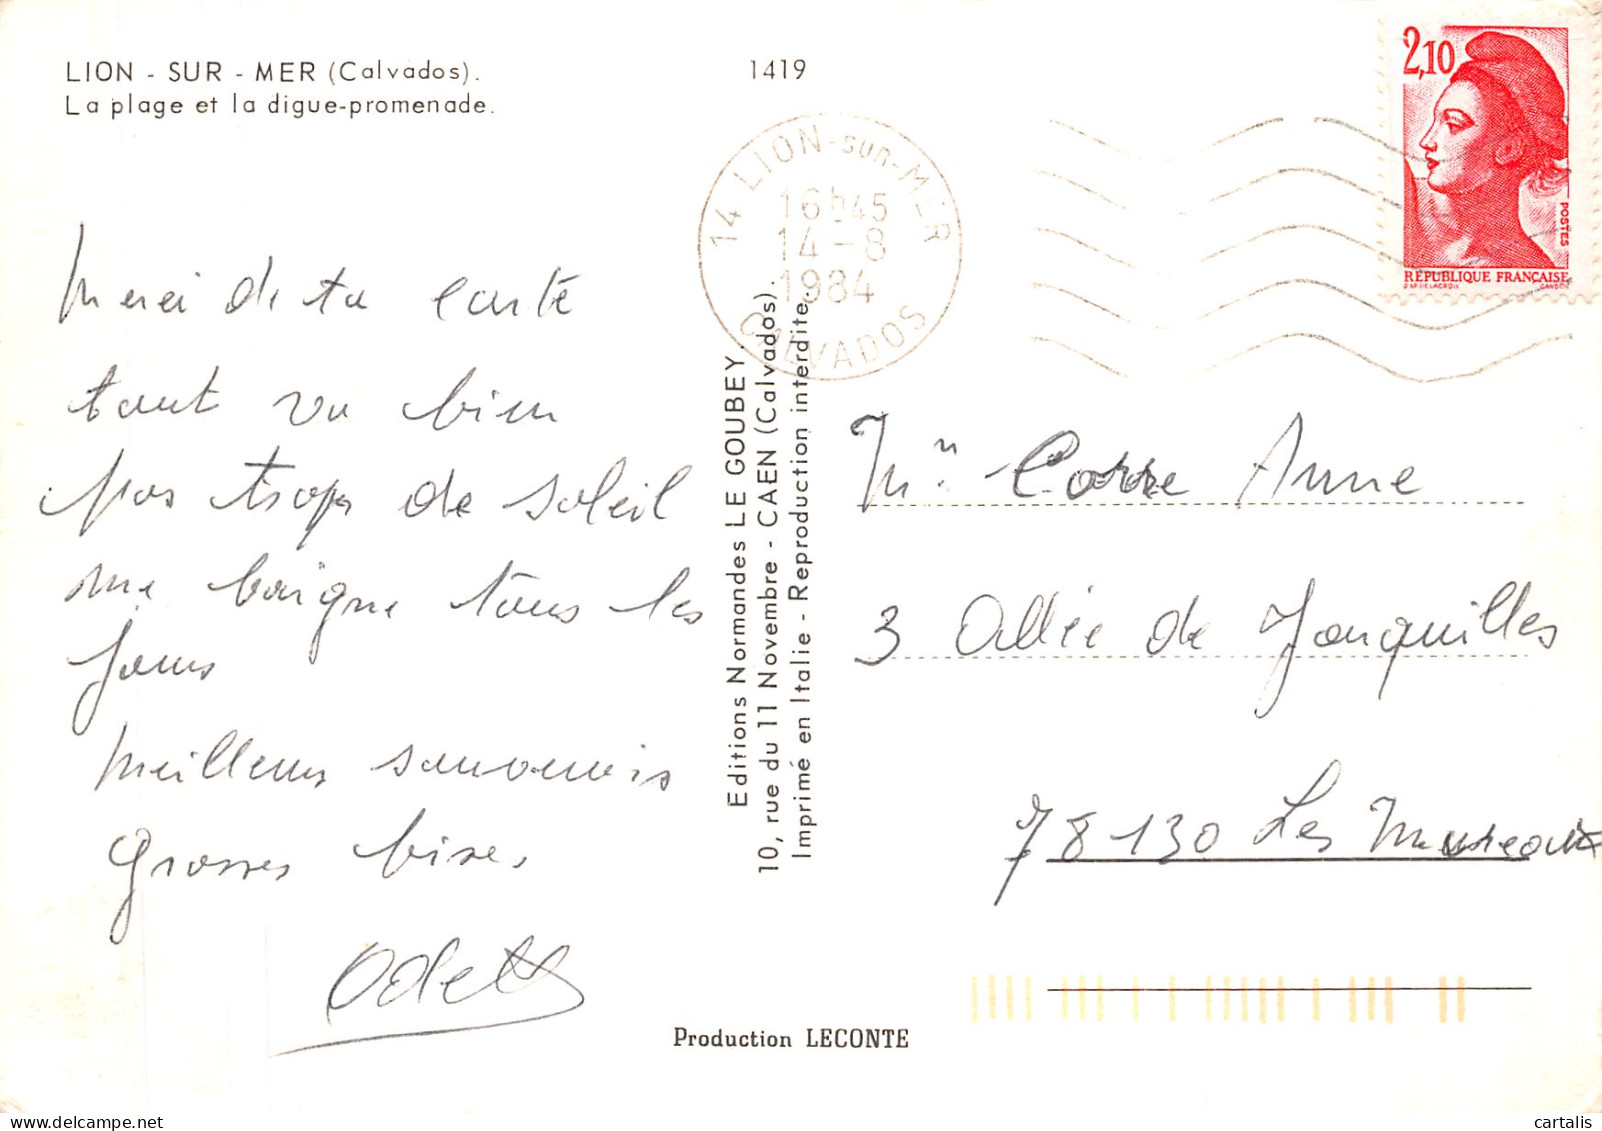 LION - SUR - MER (Calvados).
La plage et la digue-promenade.
1419
14 LION-sur-MER
16h45
14-8
1984
CALVADOS
2,10
POSTES
RÉPUBLIQUE FRANÇAISE
D'AP. DELACROIX GANDON
Merci de ta carte
tout va bien
pas trop de soleil
me baigne tous les
jours
Meilleurs souvenirs
Grosses bises,
Odette
Editions Normandes LE GOUBEY.
10, rue du 11 Novembre - CAEN (Calvados).
Imprimé en Italie - Reproduction interdite.
Corre Anne
3 Allée de Jonquilles
78130 Les Mureaux
Production LECONTE
cartalis